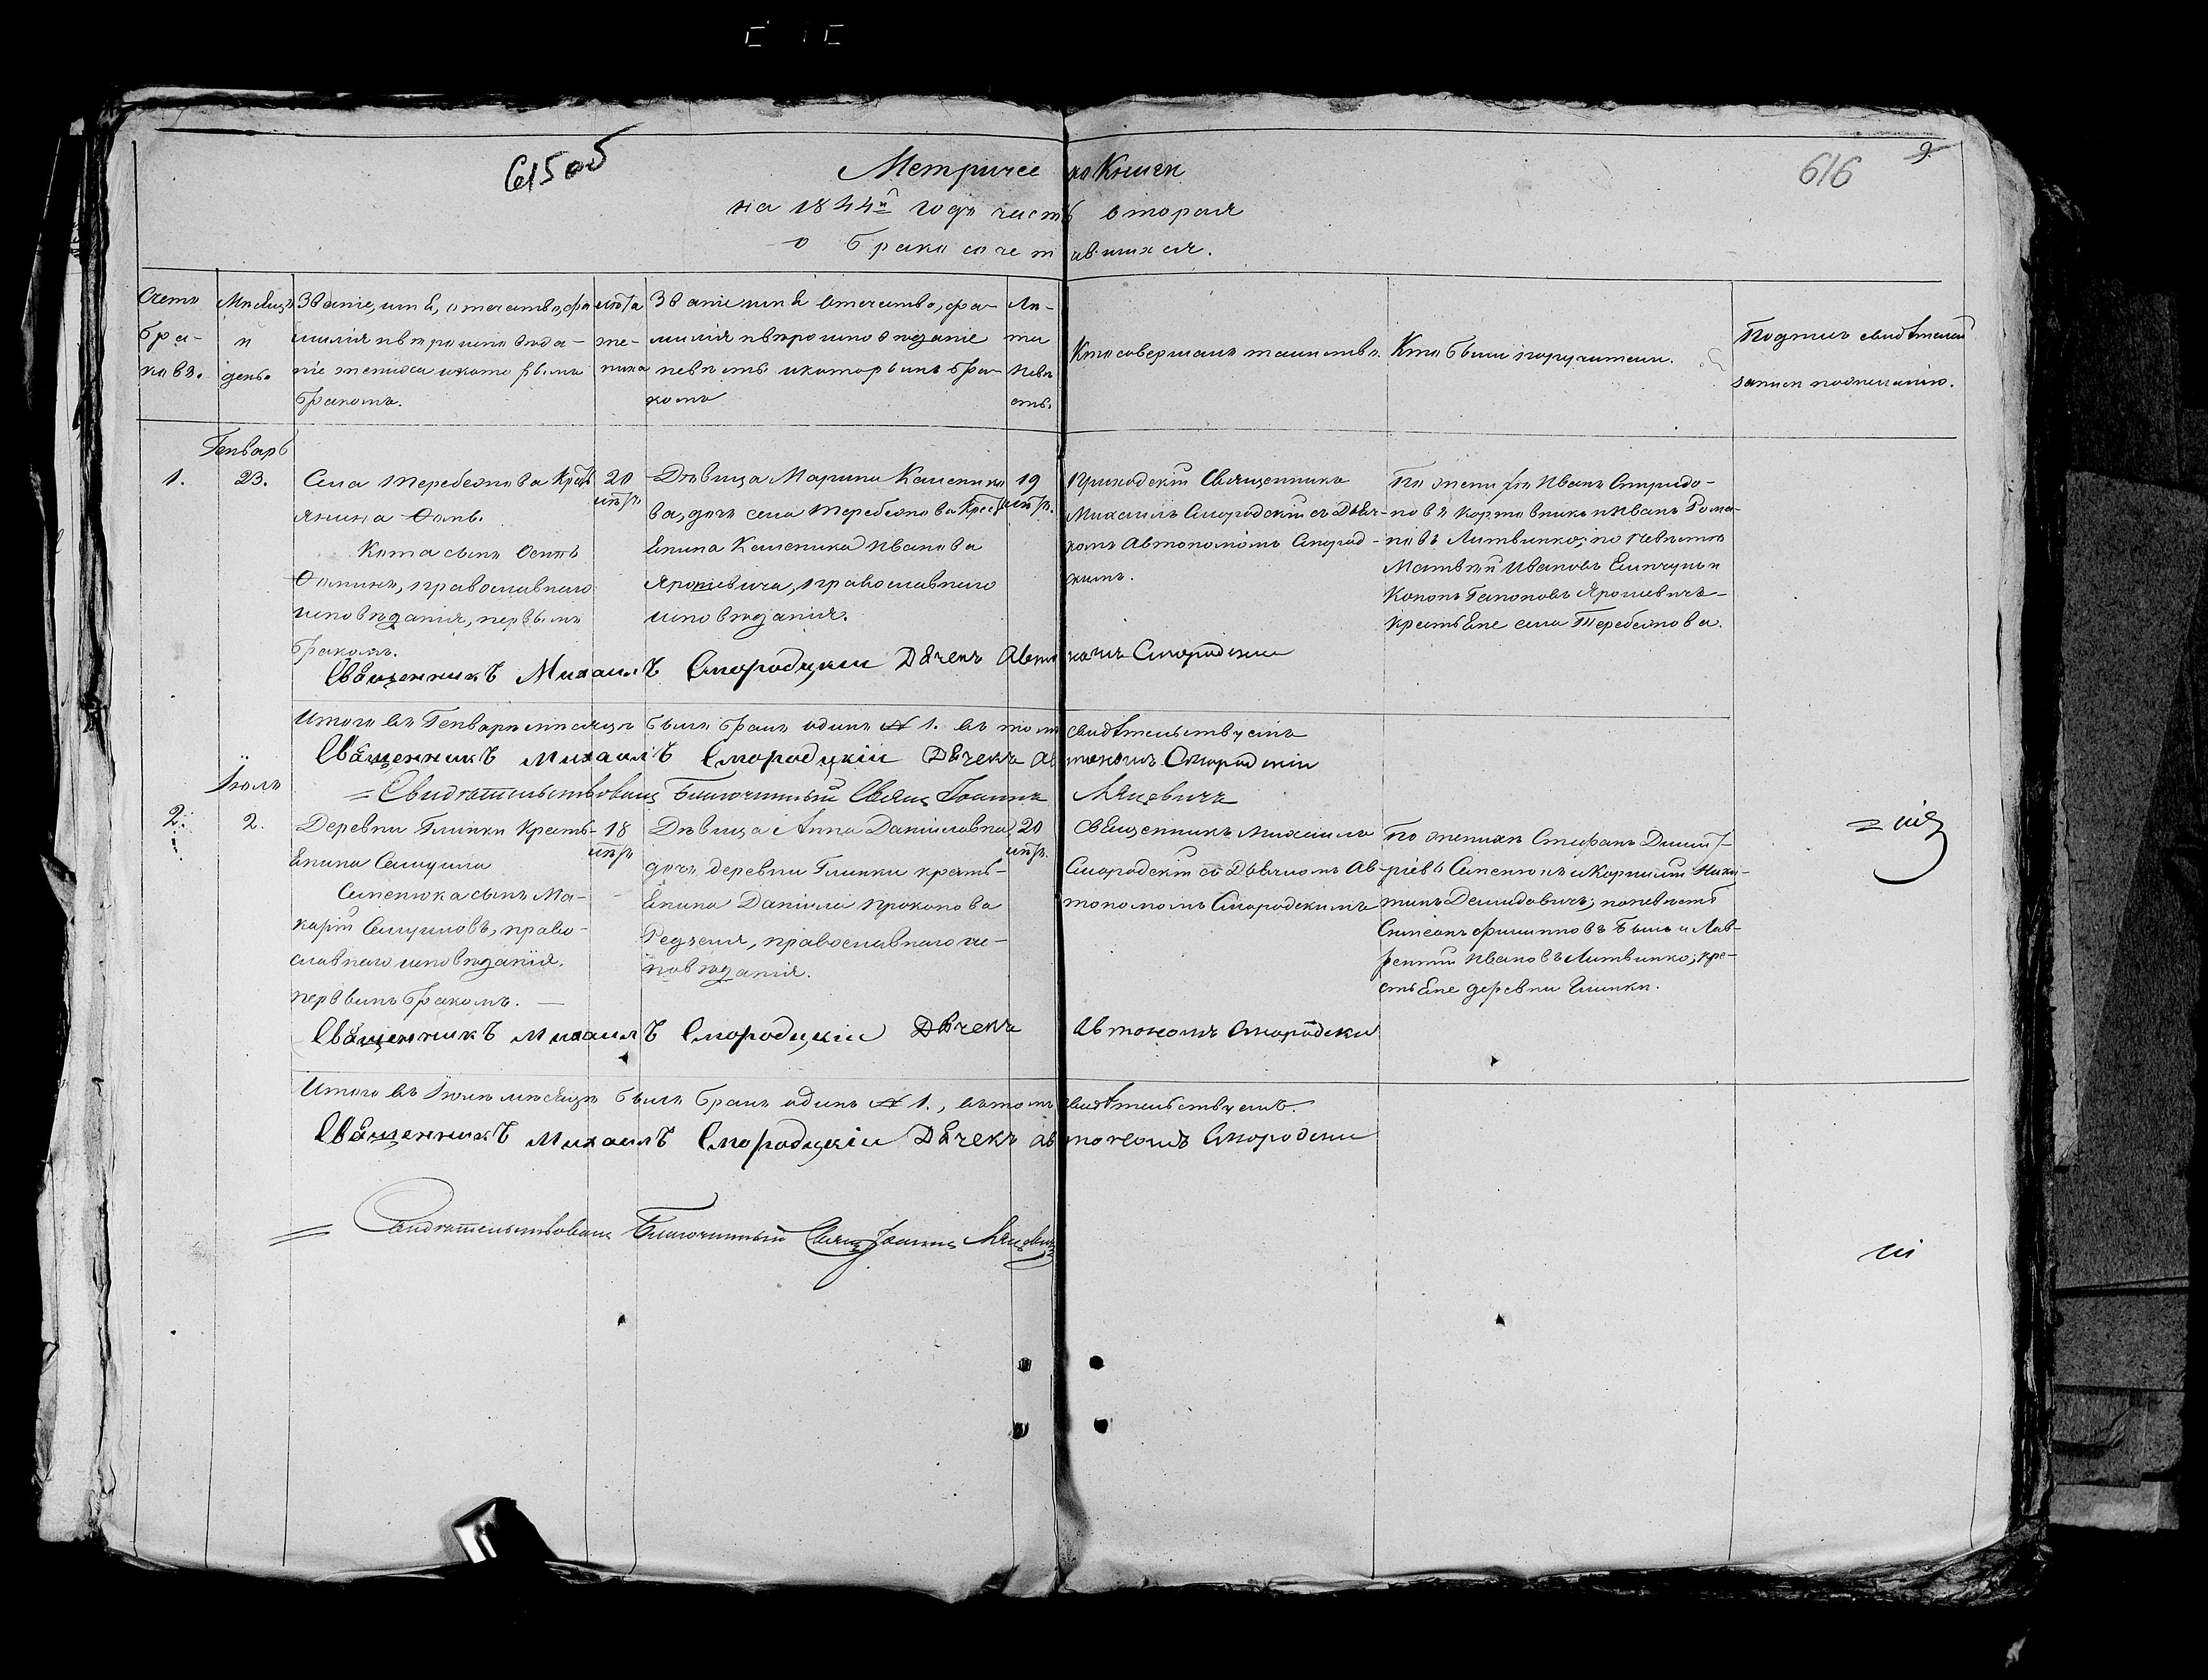 615 об
616
9.
Метричес кой Книги
на 1844й годъ часть вторая
о бракосочет авшихся.
Счетъ бра- ковъ.
Мѣсяцъ и день.
Званіе, имя, отечество, фа-
милія и вѣроисповѣда-
ніе жениха и которымъ
бракомъ.
лѣта же- ниха
Званіе имя отечество, фа-
милія и вѣроисповѣданіе
невѣсты и которымъ бра-
комъ
Лѣ- та невѣ сты.
Кто совершалъ таинство.
Кто были поручители.
Подпись свидѣтелей
записи по желанію.
Генварь
1.
23.
Села Теребежова Крест
янина Фомы
Кота сынъ
Фоминъ, православнаго
исповѣданія, первымъ
бракомъ.
20
Дѣвица Марина Каленико
ва, дочь села Теребежова Крест
янина Каленика Иванова
Ярошевича, православнаго
исповѣданія.
19
Приходскій Священникъ
Михаилъ Смородскій съ Дьяч-
комъ Автономомъ Смород-
скимъ.
По женихѣ Иванъ Спиридо-
новъ и Иванъ Рома-
новъ Литвинко, по невѣстѣ
Матвѣй Ивановъ и
Кононъ Ярошевичъ
крестьяне села Теребежова.
Священникъ Михаилъ Смородцкіи Дячекъ Автономъ Смородскіи
Итого въ Генварѣ мѣсяцѣ былъ бракъ одинъ № 1. въ томъ свидѣтельствуемъ
Священникъ Михаилъ Смородцкіи Дячекъ Автономъ Смородскіи
= Свидѣтельствовалъ Благочинный Свящ Іоаннъ
Іюль
2.
2.
Деревни Глинки Кресть-
янина Самуила
Сипенюка сынъ Ма-
карій Самуиловъ, право-
славнаго исповѣданія,
первымъ бракомъ.
18
Дѣвица Анна Даніиловна,
дочь деревни Глинки кресть-
янина Даніила Прокопова
православнаго ис-
повѣданія.
20
Священникъ Михаилъ
Смородскій съ Дьячкомъ Ав-
тономомъ Смородскимъ
По женихѣ Стефанъ Димит-
ріевъ Сипенюкъ и Корнилій Ники-
тинъ Демидовичъ; по невѣстѣ
Симеонъ Филипповъ и Лав-
рентій Ивановъ Литвинко, кре-
стьяне деревни Глинки.
Священникъ Михаилъ Смородцкіи Дячекъ Автономъ Смородскіи
Итого въ Іюлѣ мѣсяцѣ былъ бракъ одинъ № 1., въ томъ свидѣтельствуемъ.
Священникъ Михаилъ Смородцкіи Дячекъ Автономъ Смородскіи
= Свидѣтельствовалъ Благочинный Свящ Іоаннъ